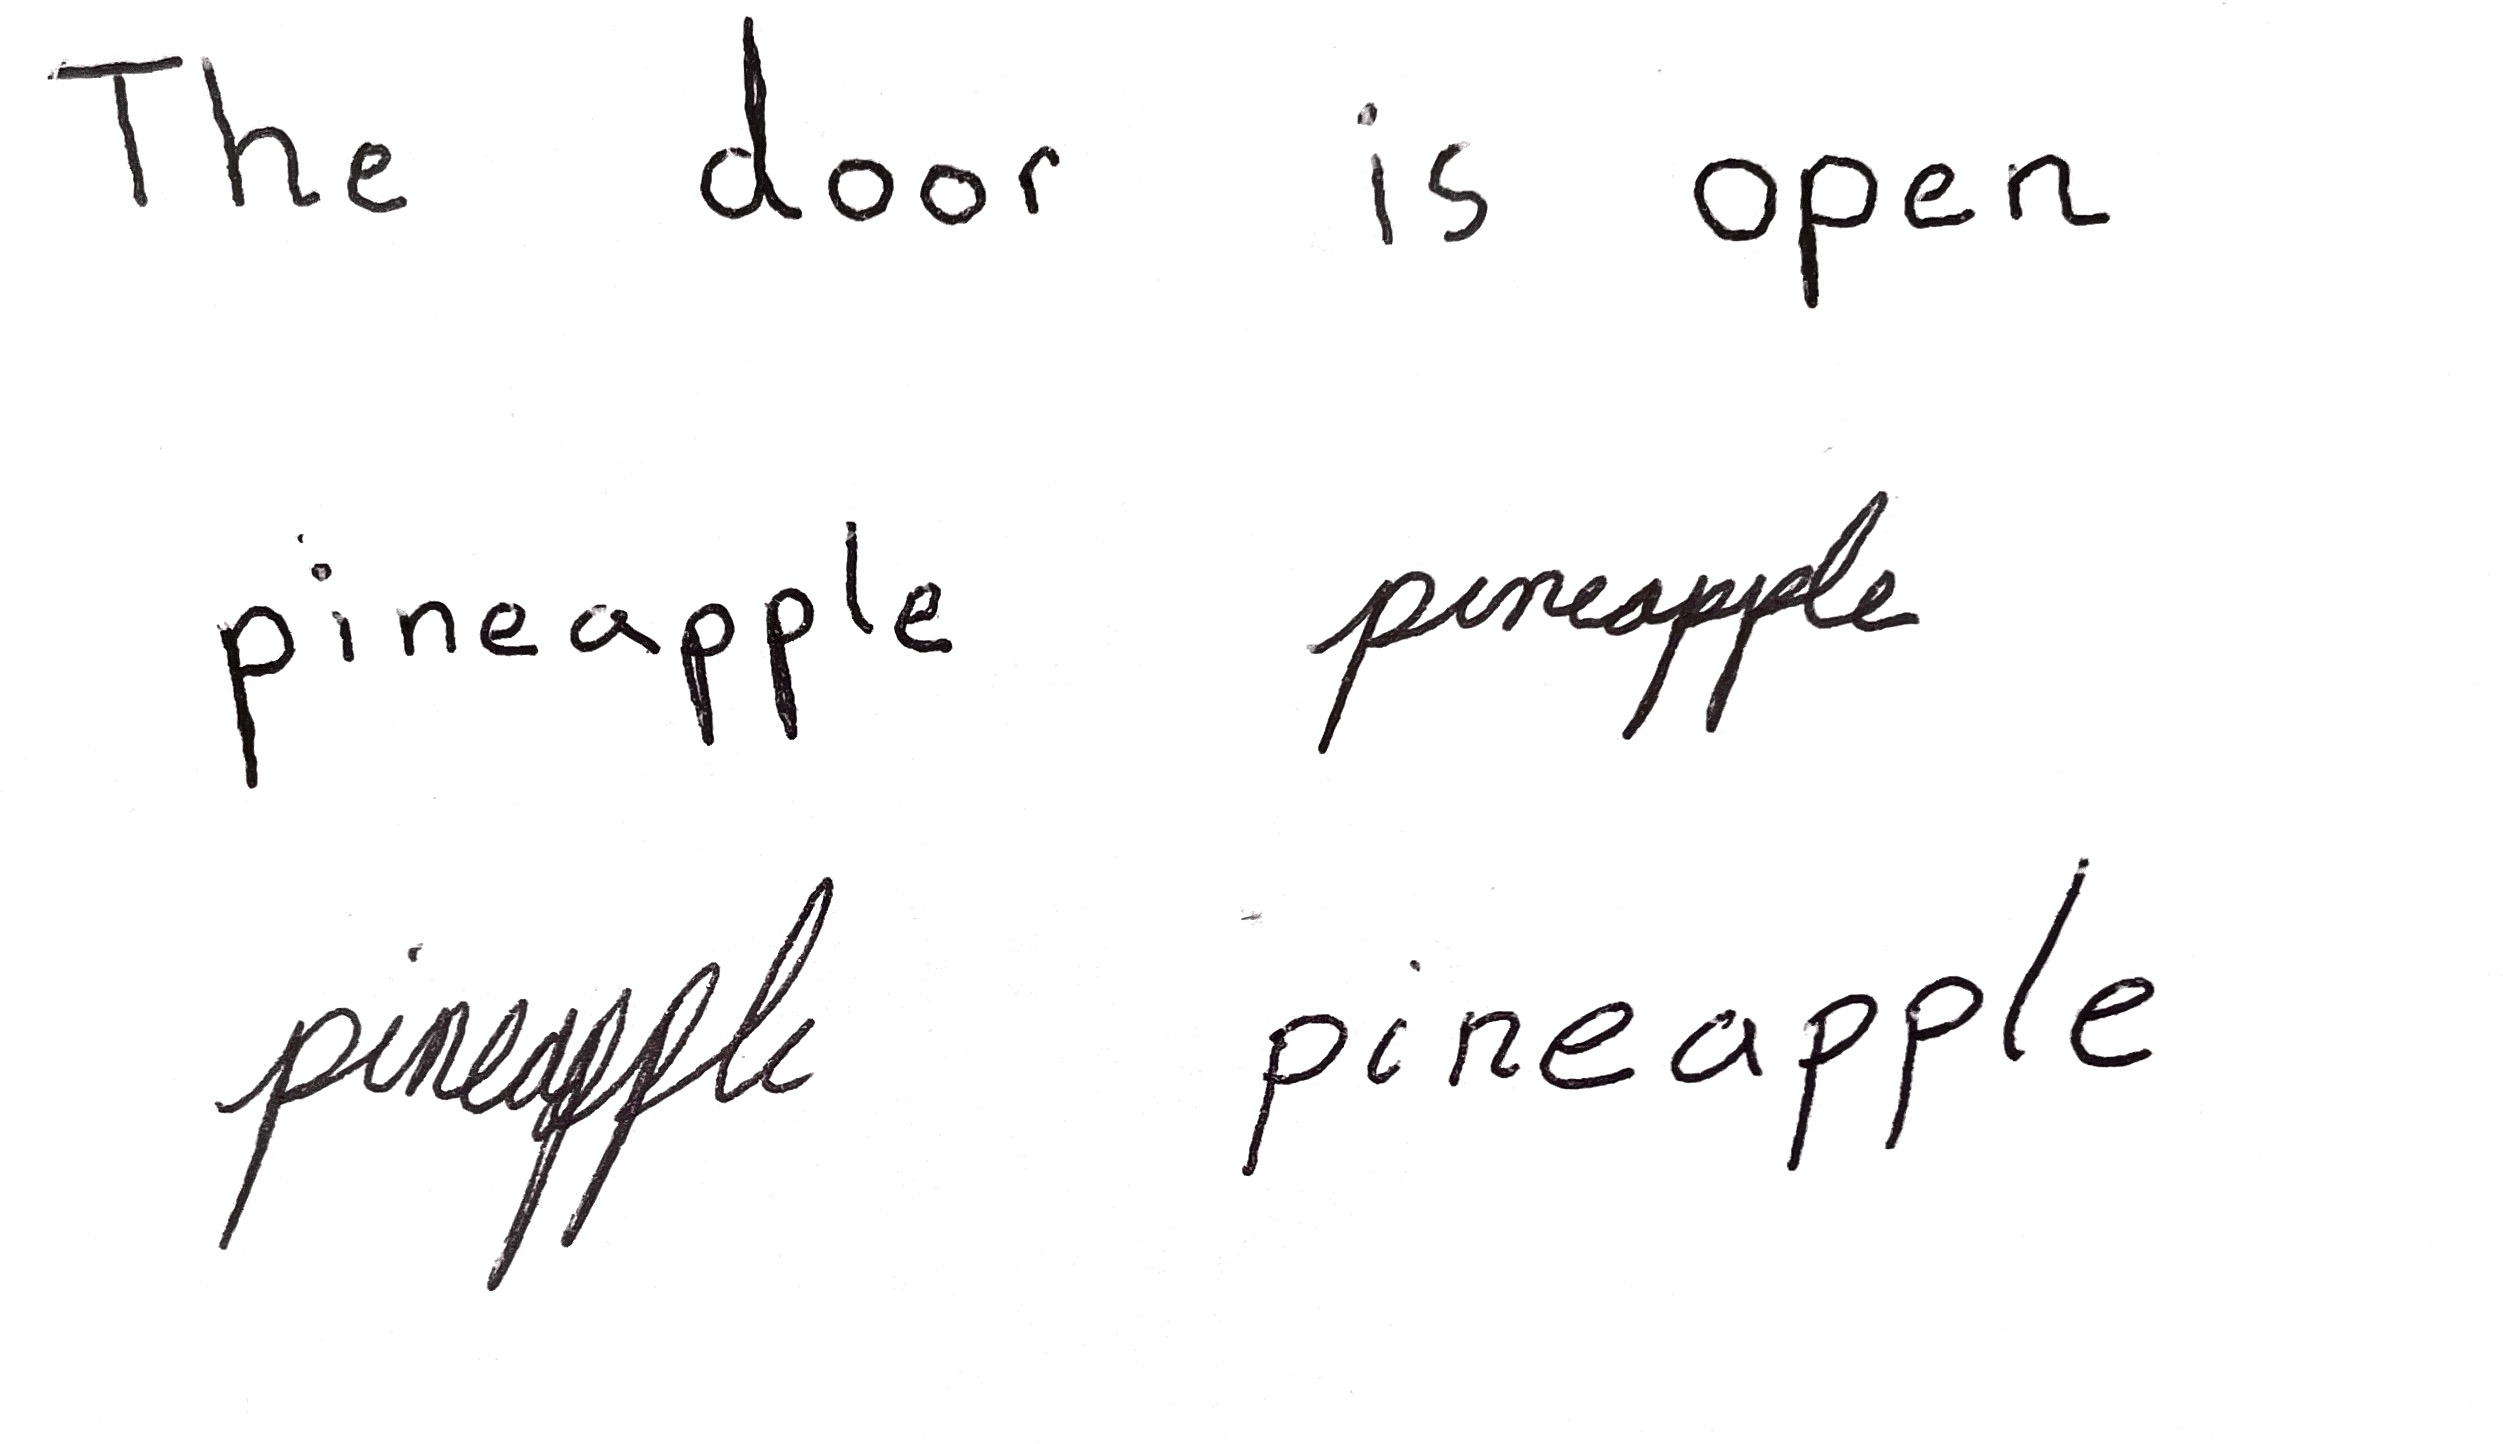 The door is open
pineapple pineapple
pineapple pineapple